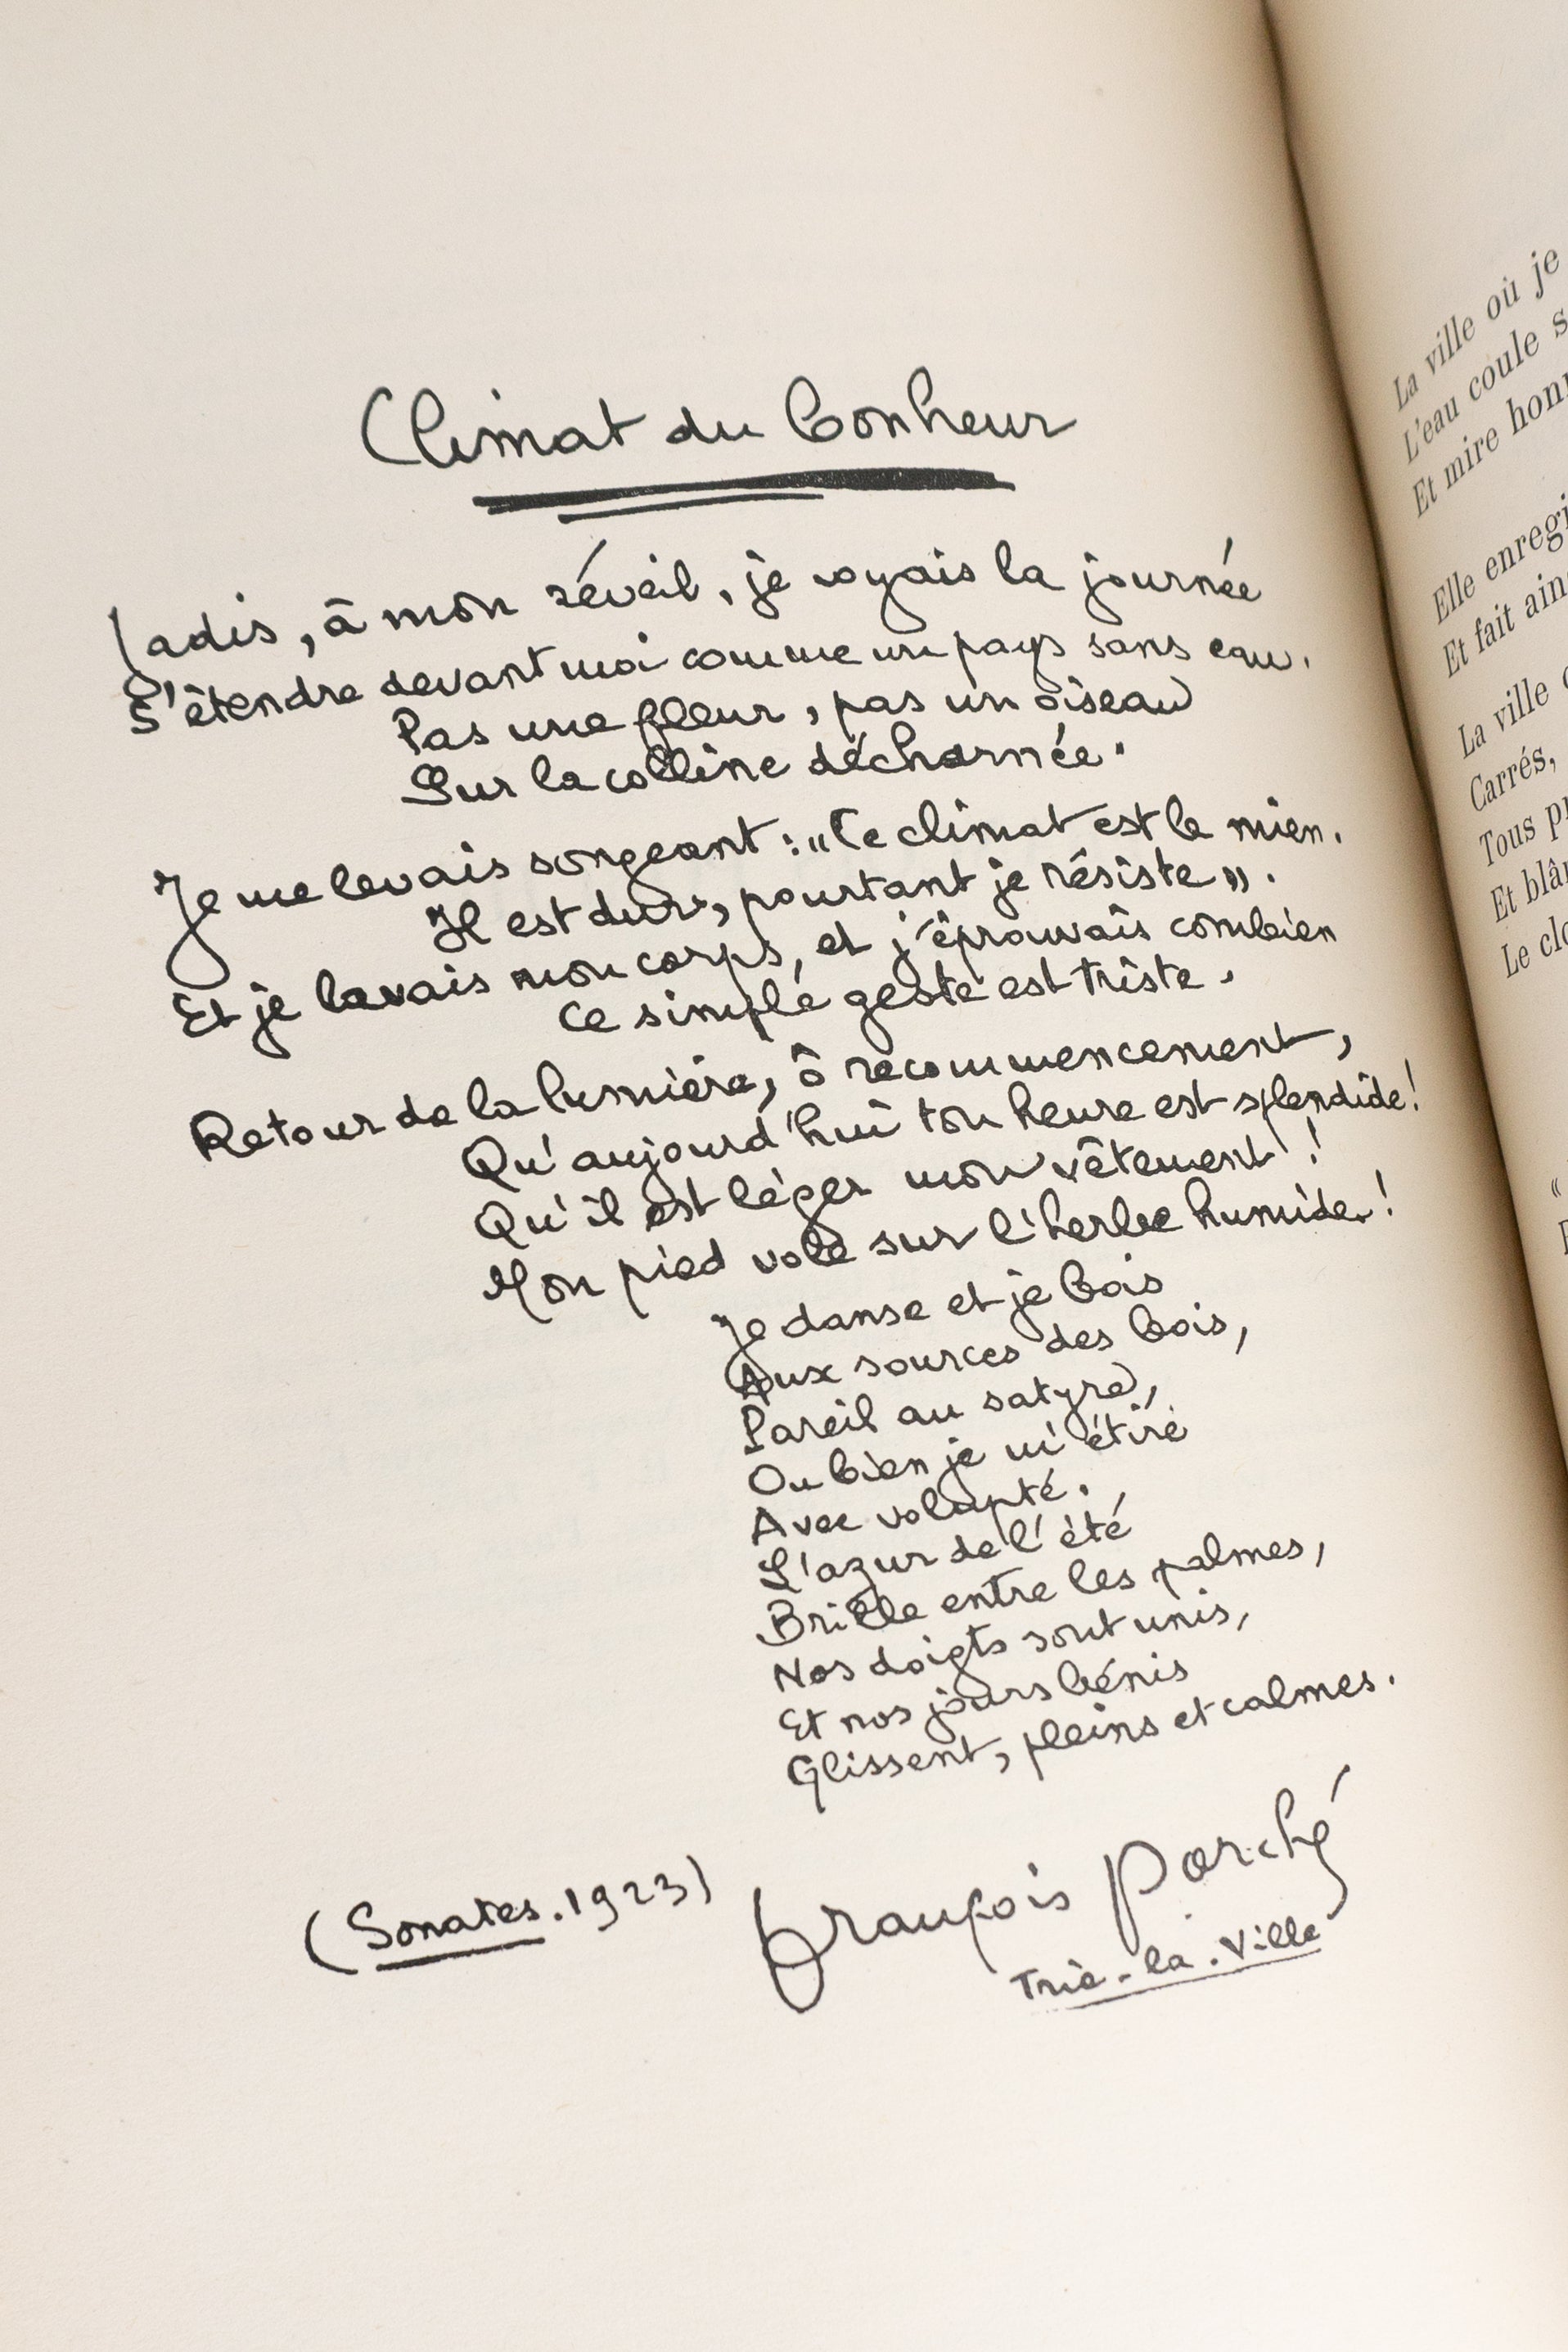 Climat du bonheur
Jadis, à mon réveil, je voyais la journée
S'étendre devant moi comme un pays sans eau.
Pas une fleur, pas un oiseau
Sur la colline décharnée.
Je me levais songeant : « Ce climat est le mien.
Il est dur, pourtant je résiste ».
Et je lavais mon corps, et j'éprouvais combien
Ce simple geste est triste.
Retour de la lumière, ô recommencement,
Qu'aujourd'hui ton heure est splendide !
Qu'il est léger mon vêtement !
Mon pied vole sur l'herbe humide !
Je danse et je bois
Aux sources des bois,
Pareil au satyre,
Ou bien je m'étire
Avec volupté.
L'azur de l'été
Brille entre les palmes,
Nos doigts sont unis,
Et nos jours bénis
Glissent, pleins et calmes.
(Sonates. 1923)
François Porché
Trie-la-Ville
La ville où je
L'eau coule s
Et mire hon
Elle enregi
Et fait ain
La ville
Carrés,
Tous p
Et blâ
Le clo
«